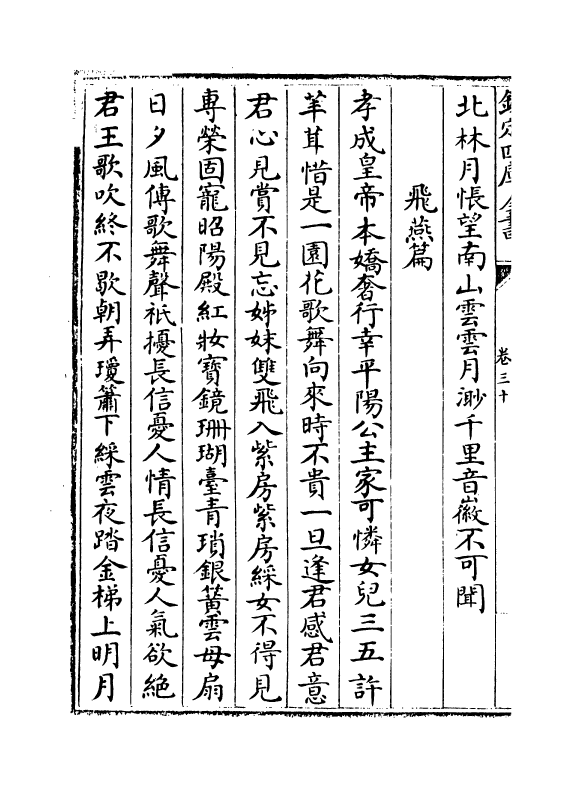 欽定四庫全書
卷三十
北林月悵望南山雲雲月渺千里音徽不可聞
飛燕篇
孝成皇帝本嬌奢行幸平陽公主家可憐女兒三五許
丰茸惜是一園花歌舞向來時不貴一旦逢君感君意
君心見賞不見忘姊妹雙飛入紫房紫房綵女不得見
專榮固寵昭陽殿紅妝寶鏡珊瑚臺青瑣銀簧雲母扇
日夕風傳歌舞聲祇擾長信憂人情長信憂人氣欲絶
君王歌吹終不歇朝弄瓊簫下綵雲夜踏金梯上明月